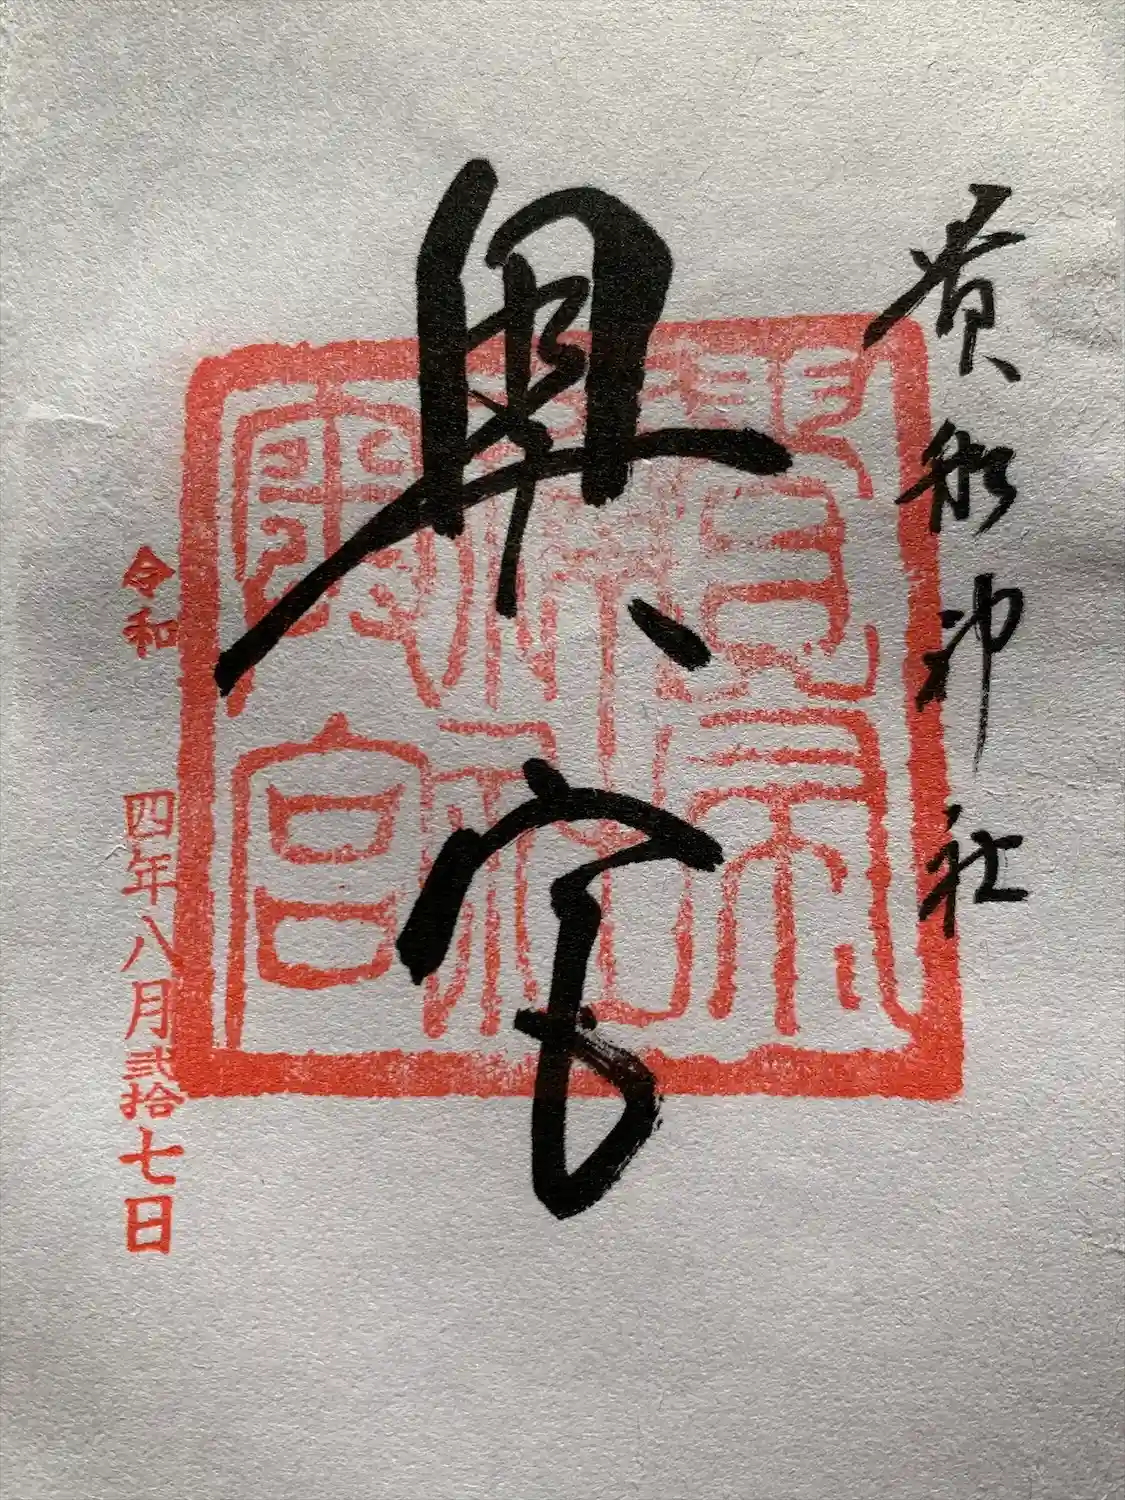 貴船神社
奥宮
令和四年八月弐拾七日